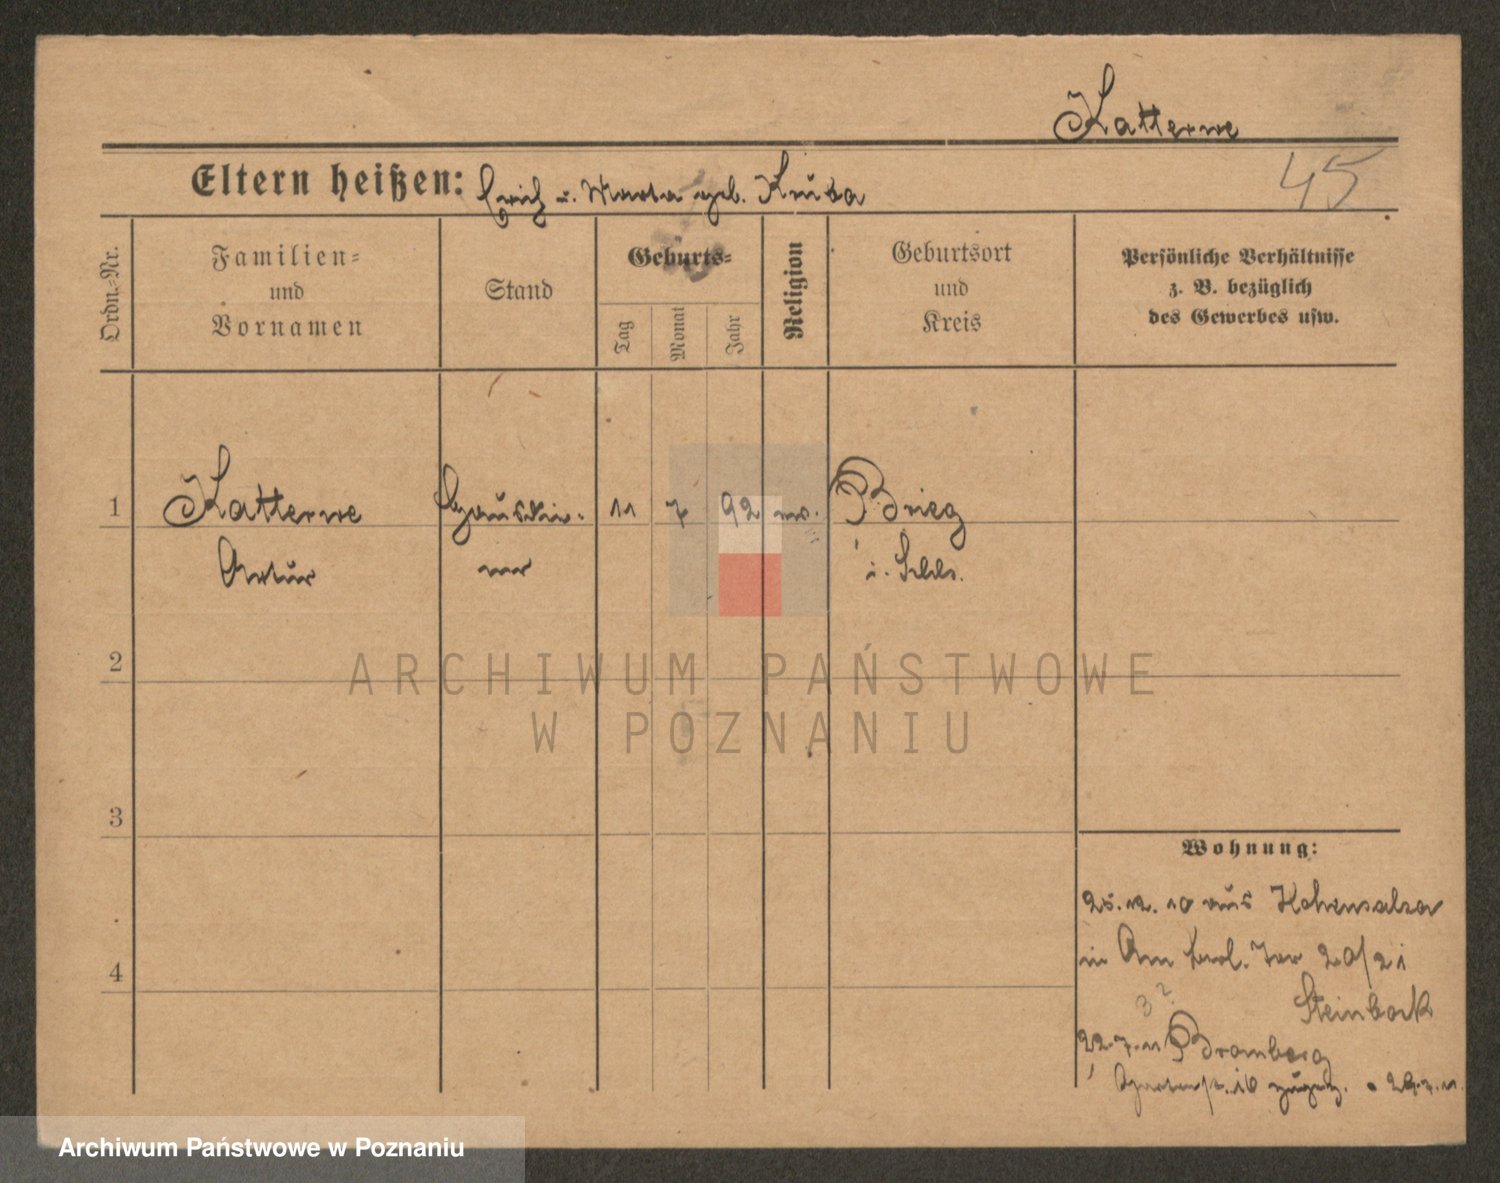 Katterwe
45
Eltern heißen: Erich u. Marta geb. Kruba
Ordn.-Nr.
Familien-
und
Vornamen
Stand
Geburts-
Tag
Monat
Jahr
Religion
Geburtsort
und
Kreis
Persönliche Verhältnisse
z. B. bezüglich
des Gewerbes usw.
1
Katterwe
Artur
11
7
92
Brieg
i. Schls.
2
3
4
Wohnung:
25.12.10 aus Hohensalza
in Am Berl. Tor 20/21
Steinbock
22.7.11 Bromberg
29.7.11
ARCHIWUM PAŃSTWOWE
W POZNANIU
Archiwum Państwowe w Poznaniu